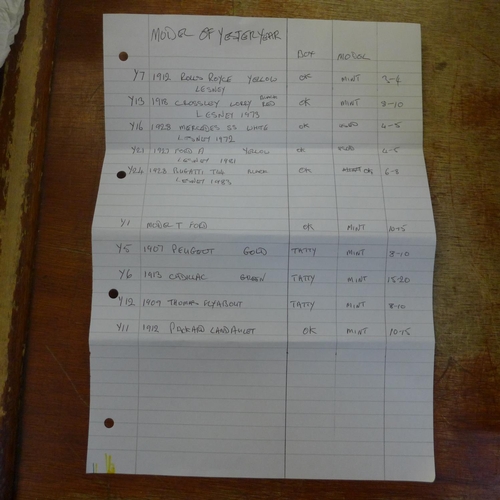 MODEL OF YESTERYEAR
BOX MODEL
Y7 1912 ROLLS ROYCE YELLOW OK MINT 3-4
LESNEY
Y13 1918 CROSSLEY LORRY BLACK RED OK MINT 8-10
LESNEY 1973
Y16 1928 MERCEDES SS WHITE OK 4-5
LESNEY 1972
Y21 1927 FORD A YELLOW OK 4-5
LESNEY 1981
Y24 1928 BUGATTI T44 BLACK OK MINT OK 6-8
LESNEY 1983
Y1 MODEL T FORD OK MINT 10-15
Y5 1907 PEUGEOT GOLD TATTY MINT 8-10
Y6 1913 CADILLAC GREEN TATTY MINT 15-20
Y12 1909 THOMAS FLYABOUT TATTY MINT 8-10
Y11 1912 PACKARD LANDAULET OK MINT 10-15